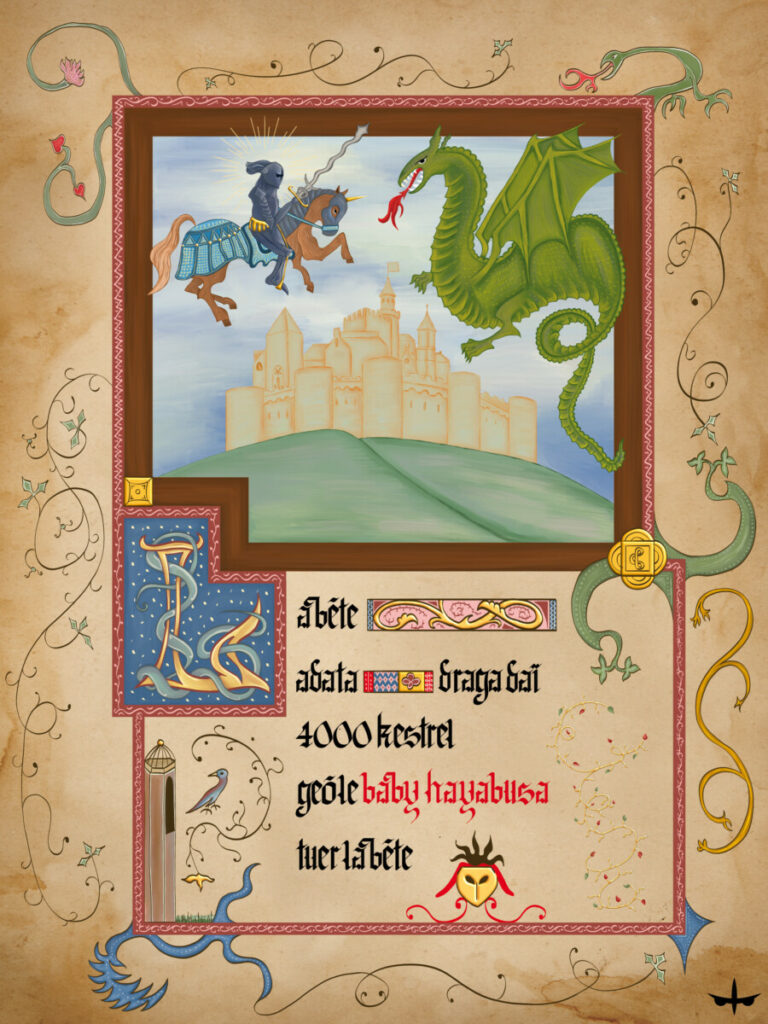 La bête
adata draga daï
4000 kestrel
geôle baby hayabusa
tuer la bête